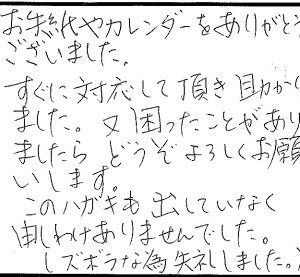 お手紙やカレンダーをありがとう
ございました。
すぐに対応して頂き助かり
ました。又困ったことがあり
ましたら どうぞよろしくお願
いします。
このハガキも出していなく
申しわけありませんでした。
ズボラな為失礼しました。